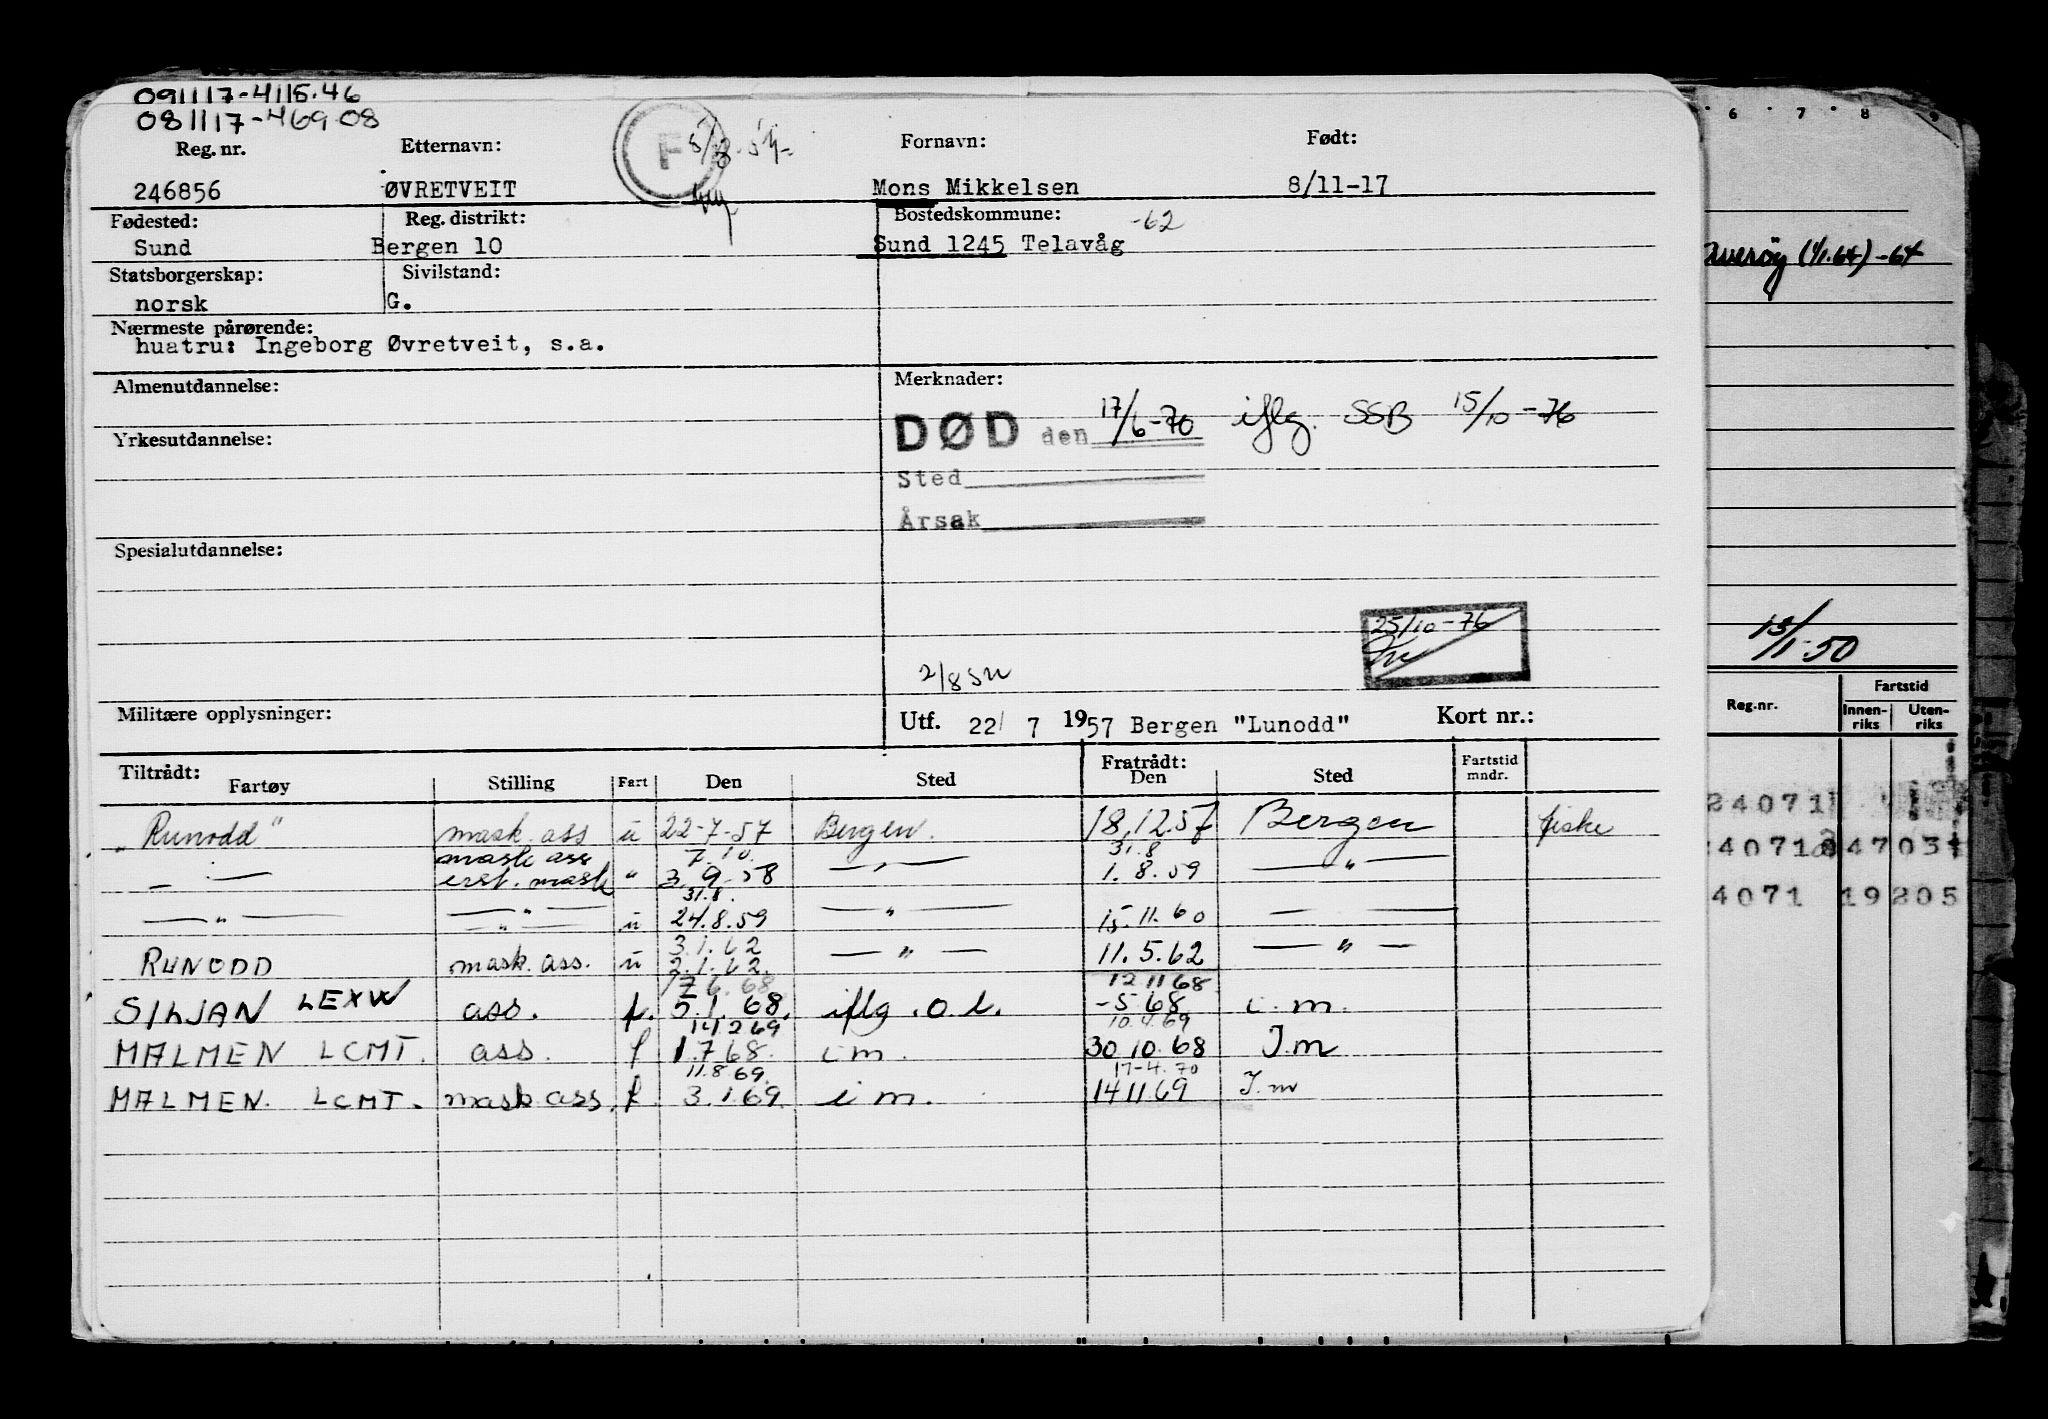 091117-4118.46
081117-469 08
Reg. nr. Etternavn: Fornavn: Født:
F 5/3-54-
246856 ØVRETVEIT Mons Mikkelsen 8/11-17
Fødested: Reg. distrikt: Bostedskommune: -62
Sund Bergen 10 Sund 1245 Telavåg
Statsborgerskap: Sivilstand:
norsk G.
Nærmeste pårørende:
huatru: Ingeborg Øvretveit, s.a.
Almenutdannelse: Merknader:
DØD den 17/6-70 iflg. SSB 15/10-76
Yrkesutdannelse:
Sted
Årsak
Spesialutdannelse:
25/10-76
2/8 SN
Militære opplysninger: Utf. 22/ 7 1957 Bergen "Lunodd" Kort nr.:
Tiltrådt: Fratrådt: Fartstid mndr.
Fartøy Stilling Fart Den Sted Den Sted
"Runodd" mask. ass u 22-7-57 Bergen. 18.12.57 Bergen fiske
mask ass 7.10. 31.8
— " — erst. mask " 3.9.58 — " — 1.8.59 — " —
31.8.
— " — — " — u 24.8.59 — " — 15.11.60 — —
— " — 3.1.62
RUNODD mask. ass. u 2.1.62. — " — 11.5.62 — " —
17 6.68 12 11 68
SILJAN LEXW ass. f. 5.1.68. iflg. o.l. -5 68 i.m.
14.2 69 10.4.69
MALMEN LCMT. ass. f 1.7 68. i m. 30 10.68 I.m
11.8 69. 17-4.70
MALMEN. LCMT. mask ass. f. 3.1.69 i m. 14 11 69 I.m
6 7 8 9
Averøy (1/1.64)-64
13/1-50
Reg.nr. Fartstid
Innen-riks Uten-riks
24071
4071 4703
4071 19205